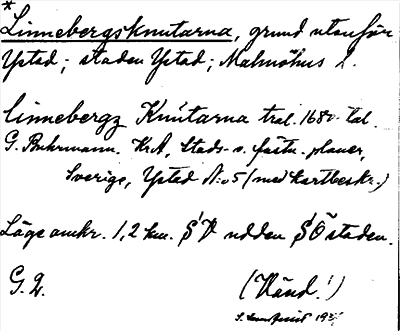 *
Linnebergsknutarna, grund utanför
Ystad; staden Ystad; Malmöhus l.
linnebergz Knutarna tral. 1680-tal.
G. Buhrmann. KrA, Stads- o. fästn. planer,
Sverige, Ystad N:o 5 (med kartbeskr.)
Läge omkr. 1,2 km. SV udden SÖ staden.
G. 2.
(Vänd!)